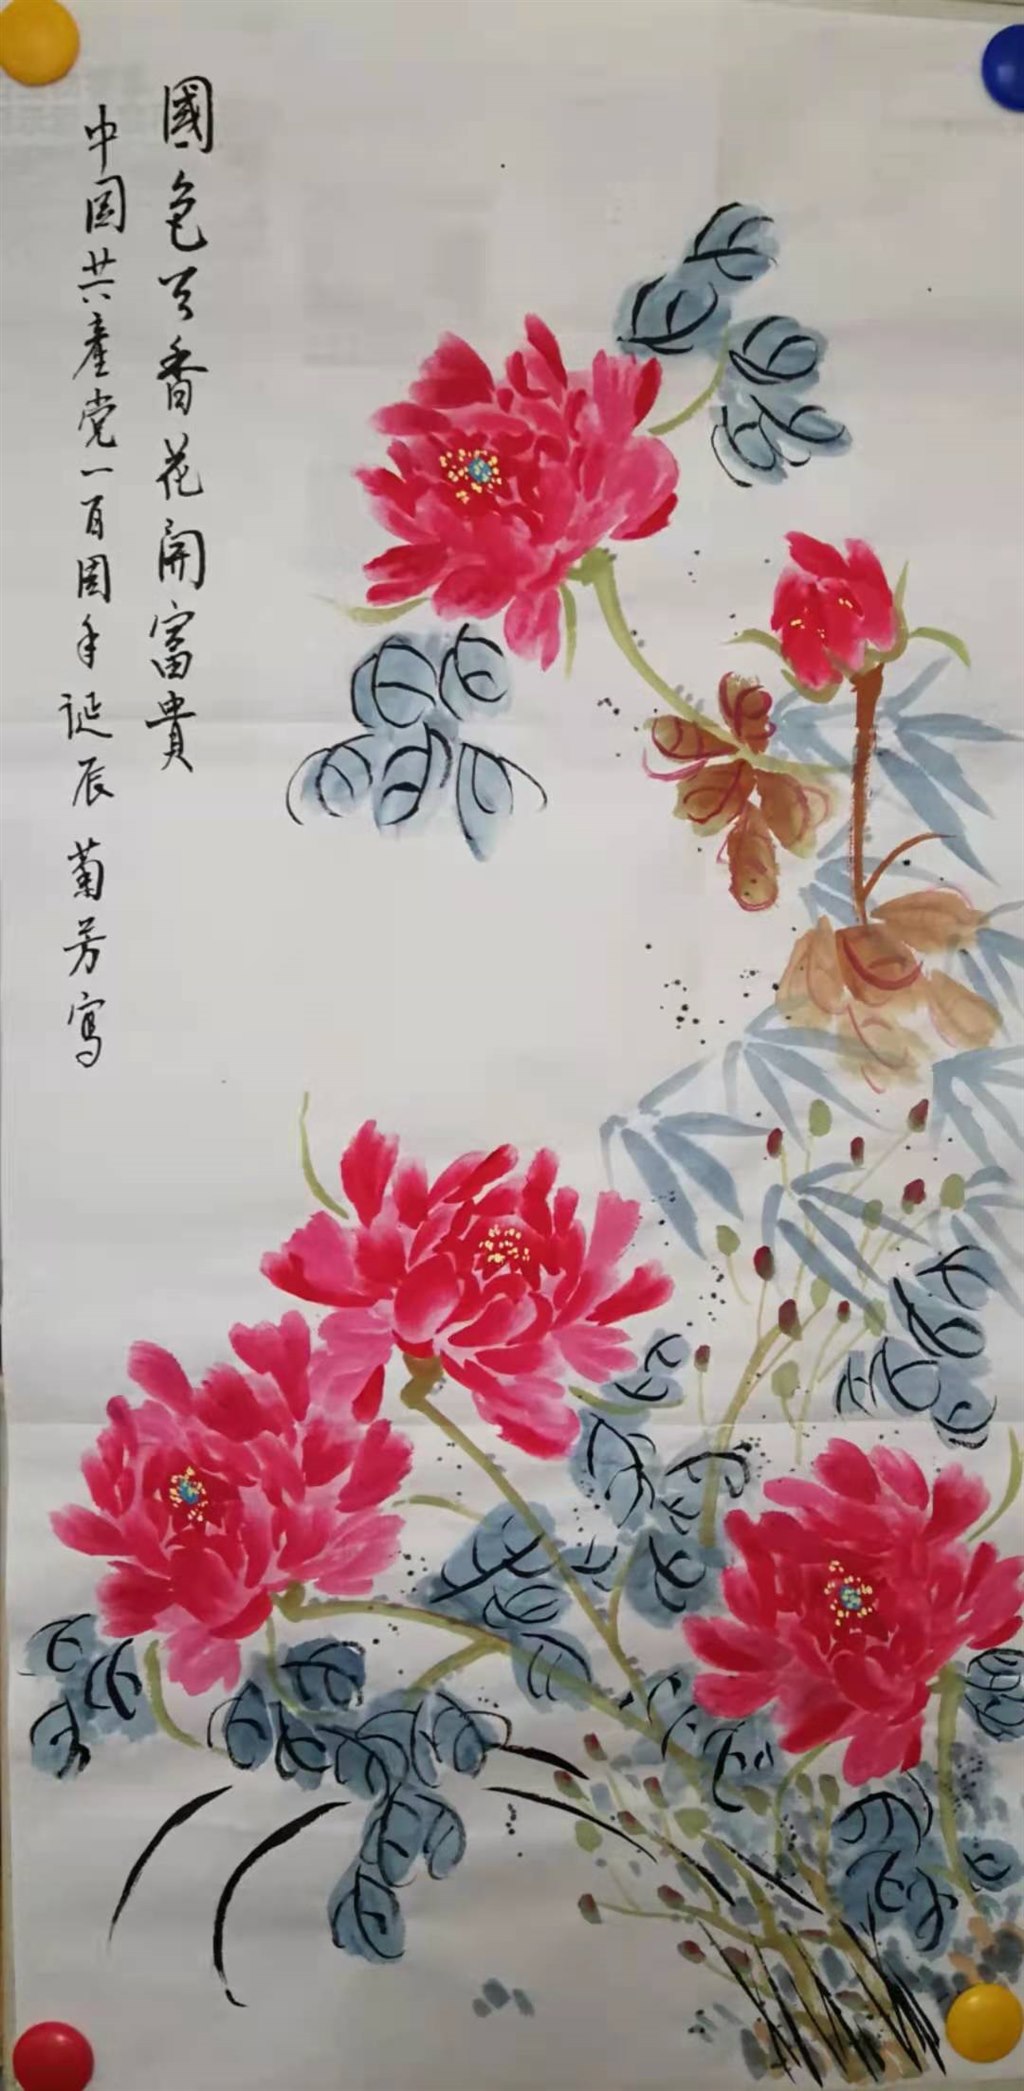 國色天香花開富貴
中国共產党一百周年诞辰 菊芳寫